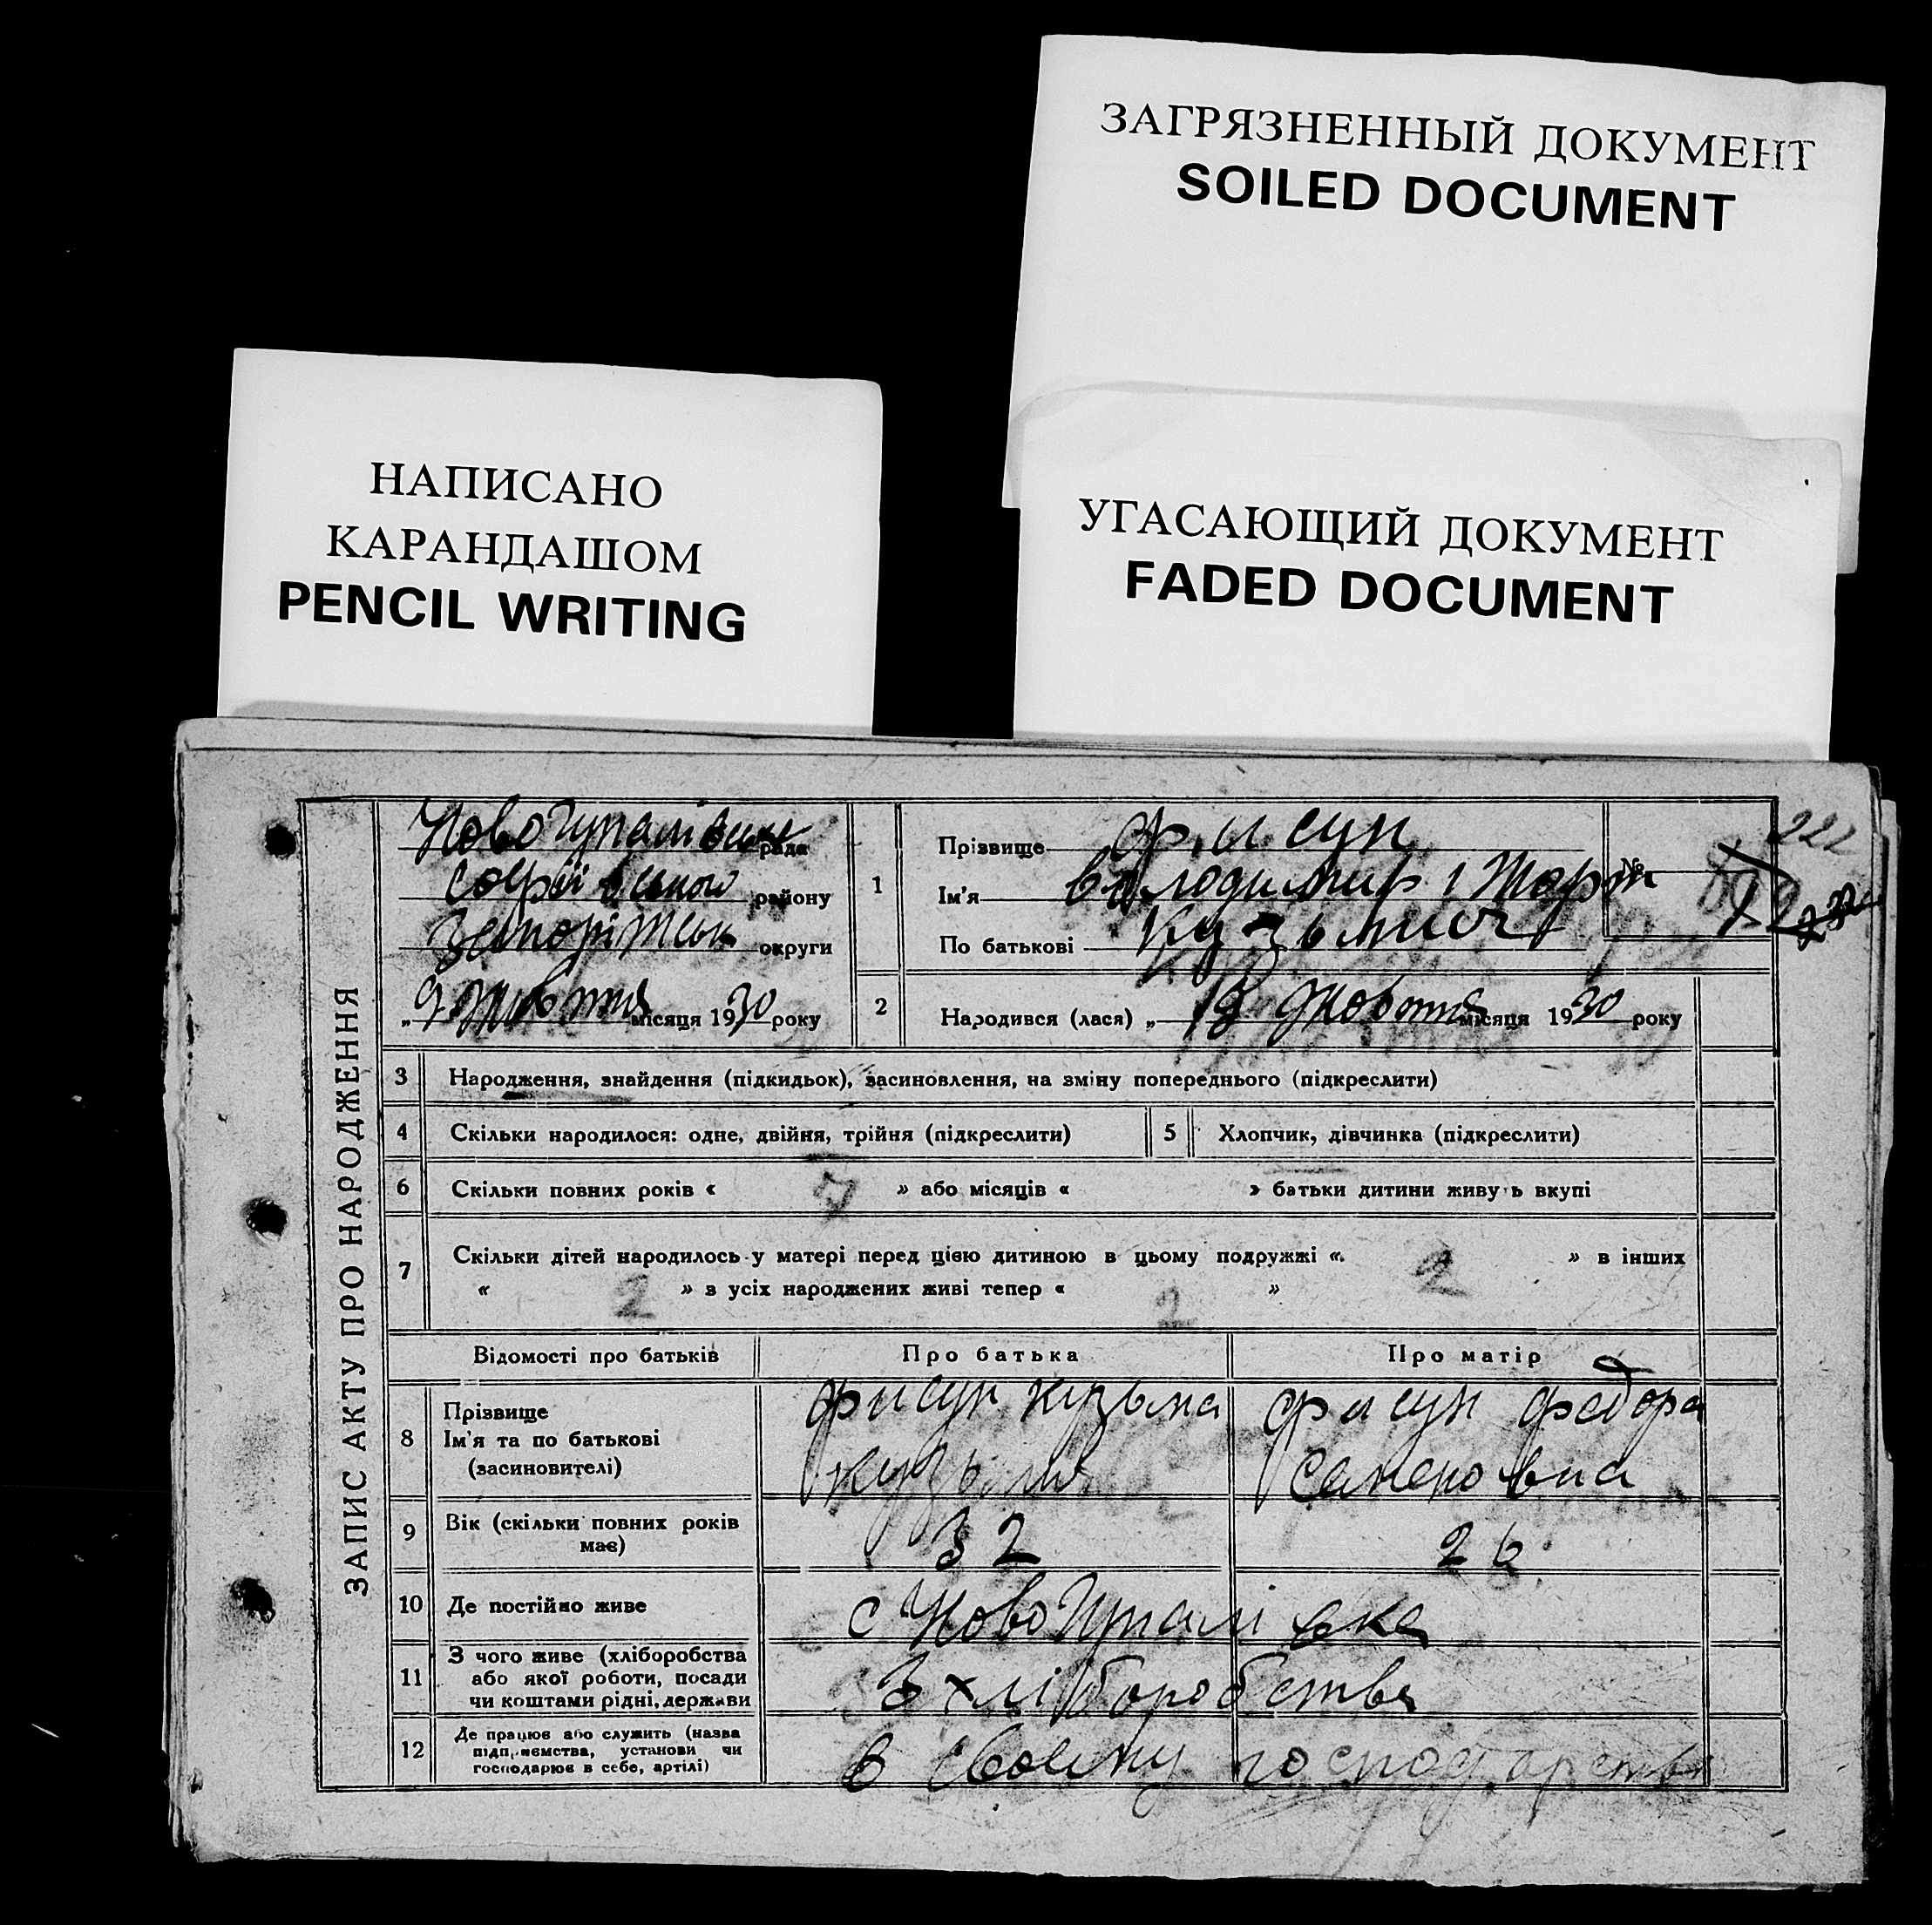 ЗАГРЯЗНЕННЫЙ ДОКУМЕНТ
SOILED DOCUMENT
НАПИСАНО
КАРАНДАШОМ
PENCIL WRITING
УГАСАЮЩИЙ ДОКУМЕНТ
FADED DOCUMENT
222
ЗАПИС АКТУ ПРО НАРОДЖЕННЯ
рада
району
округи
9 жовтня місяця 1930 року
1
Прізвище Фисун
Ім'я Володимир і
По батькові Кузьмич
№
2
Народився (лася) „ жовтня місяця 1930 року
3 Народження, знайдення (підкидьок), засиновлення, на зміну попереднього (підкреслити)
4 Скільки народилося: одне, двійня, трійня (підкреслити)
5 Хлопчик, дівчинка (підкреслити)
6 Скільки повних років « 7 » або місяців « » батьки дитини живуть вкупі
7 Скільки дітей народилось у матері перед цією дитиною в цьому подружжі « 2 » в інших
« 2 » з усіх народжених живі тепер « 2 »
Відомості про батьків Про батька Про матір
8 Прізвище
Ім'я та по батькові
(засиновителі)
Фисун Кузьма
Фисун Федора
9 Вік (скільки повних років
має)
32 26
10 Де постійно живе
с
11 З чого живе (хліборобства
або якої роботи, посади
чи коштами рідні, держави
З хліборобства
12 Де працює або служить (назва
підприємства, установи чи
господарює в себе, артілі)
В своєму господарстві